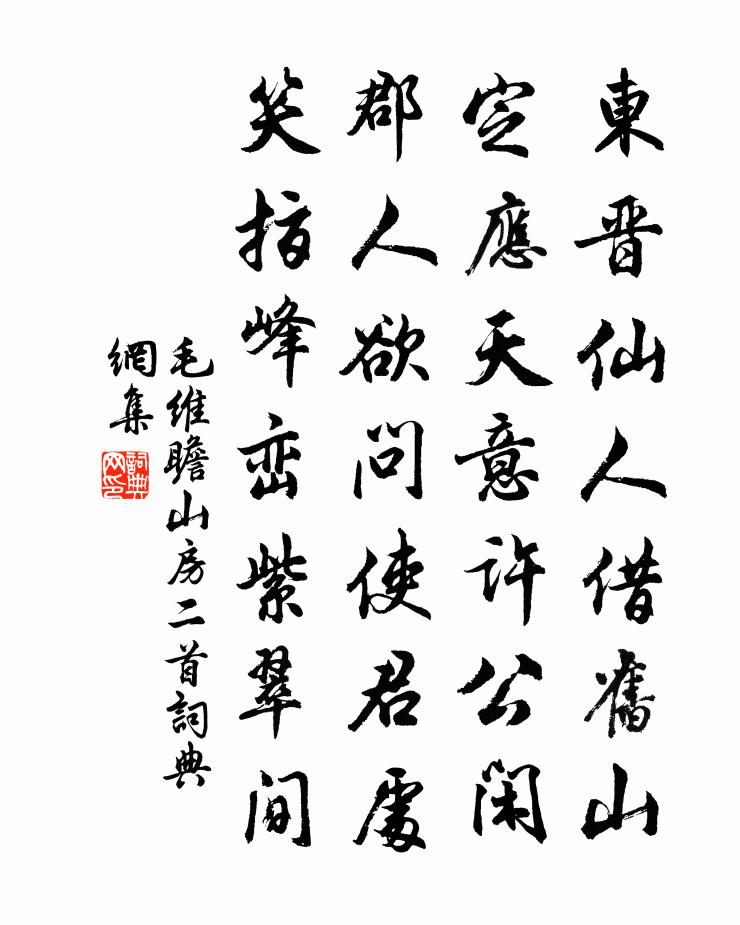 東晋仙人借舊山
定應天意許公閑
郡人欲問使君處
笑指峰巒紫翠間
毛維瞻山房二首詞典
網集
詞典網印